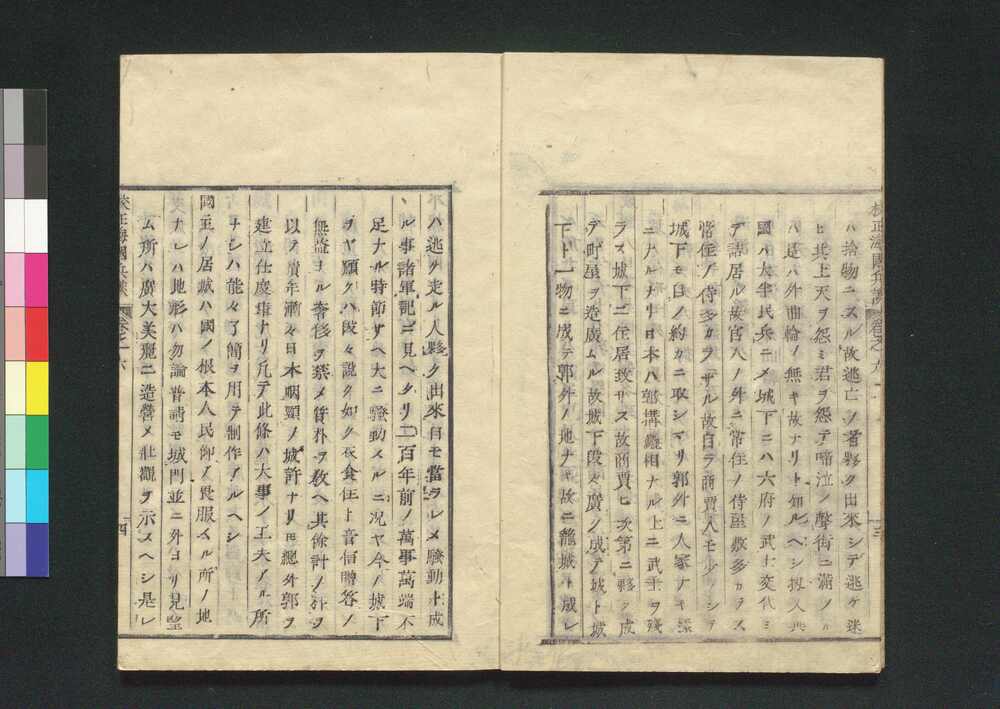 ハ捨物ニスル故逃亡ノ者夥ク出來シデ逃ケ迷
ヒ共上天ヲ怨ミ君ヲ怨テ啼泣ノ聲街ニ滿ノ
ハ是ハ外曲輪ノ無キ故ナリト知ルヘシ
國ハ大半民兵ニメ城下ニハ六府ノ武士交代ミ
デ詰居ル故官人ノ外ニ常住ノ侍屋敷多カラス
常住ノ侍多カラサル故自ラ商賈人モ少シ
城下モ自ノ約カニ取シマリ郭外ニ人家ナキ
ニナルナリ日本ハ郭搆麤相ナル上ニ武士ヲ殘
ラス城下ニ住居致サス故商賈モ次第ニ夥ク成
デ町屋ヲ造廣ムル故城下段々廣ク成テ城ト城
下ト一物ニ成テ郭外ノ地ナキ故ニ籠城ト成レ
ハ逃ケ走ル人夥ク出來目モ當ラレメ騷動ト成
ル事諸軍記ニ見ヘタリ二百年前ノ萬事萬端不
足ナル時節サヘ大ニ騷動スルニ況ヤ今ノ城下
ヲヤ願クハ段々說ク如ク衣食住ト音信贈答ノ
無益ヨル奢侈ヲ禁メ質朴ヲ教ヘ其餘計ノ
以テ積年漸々日本咽頸ノ城許ナリ𪜈總外郭ヲ
建立仕度者ナリ凡テ此條ハ大事ノ工夫アル所
ナレハ能々了簡ヲ用テ制作アルヘシ
國主ノ居城ハ國ノ根本人民仰ノ畏服スル所ノ地
ナレハ地形ハ勿論普請モ城門並ニ外ヨリ見望
ム所ハ廣大美麗ニ造營メ壯觀ヲ示スヘシ是レ
校正海國兵談